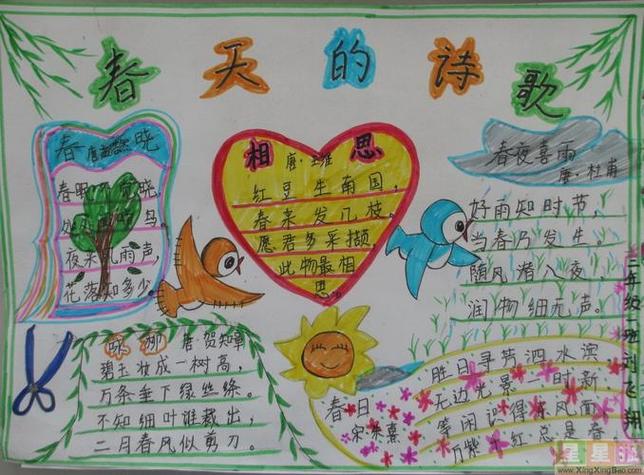 春天的诗歌
春晓
唐 孟浩然
春眠不觉晓，
处处闻啼鸟。
夜来风雨声，
花落知多少。
相思
唐·王维
红豆生南国，
春来发几枝。
愿君多采撷
此物最相
思。
春夜喜雨
唐·杜甫
好雨知时节，
当春乃发生。
随风潜入夜，
润物细无声。
咏柳 唐·贺知章
碧玉妆成一树高，
万条垂下绿丝绦。
不知细叶谁裁出，
二月春风似剪刀。
春日
宋·朱熹
胜日寻芳泗水滨
无边光景一时新
等闲识得东风面
万紫千红总是春
刘飞翔
星星报
www.XingXingBao.cn